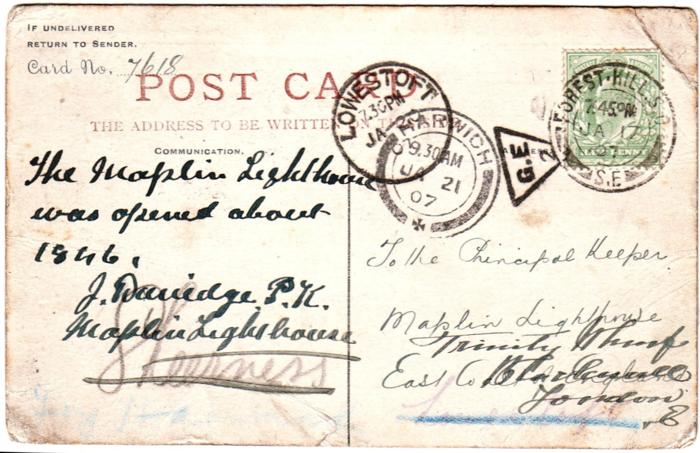 IF UNDELIVERED
RETURN TO SENDER.
Card No. 7618
POST CARD
THE ADDRESS TO BE WRITTEN
COMMUNICATION.
The Maplin Lighthouse
was opened about
1846.
P.K.
Maplin Lighthouse
Sheerness
LOWESTOFT
.30PM
JA
HARWICH
9.30AM
JA 21
07
G.E
2
FOREST-HILL S.O
7.45PM
JA 17
07
S.E
To the Principal Keeper
Maplin Lighthouse
Trinity Wharf
East
Blackwall
London
E